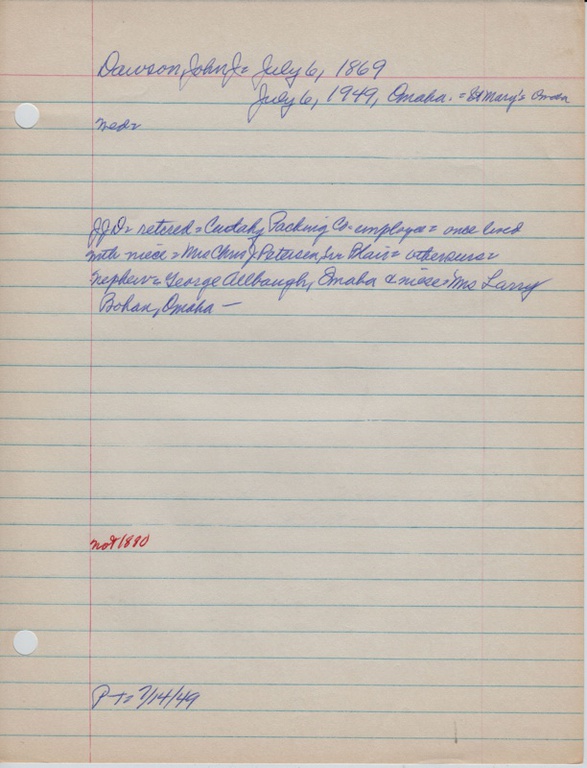 Dawson, John J = July 6, 1869
July 6, 1949, Omaha. = St Mary's Omaha
Med=
JJD = retired = Cudahy Packing Co = employee = once lived
with niece = Mrs Chris J Petersen, in Blair = other surs =
Nephew = George Allbaugh, Omaha & niece = Mrs Larry
Bohan, Omaha —
not 1880
P-T= 7/14/49